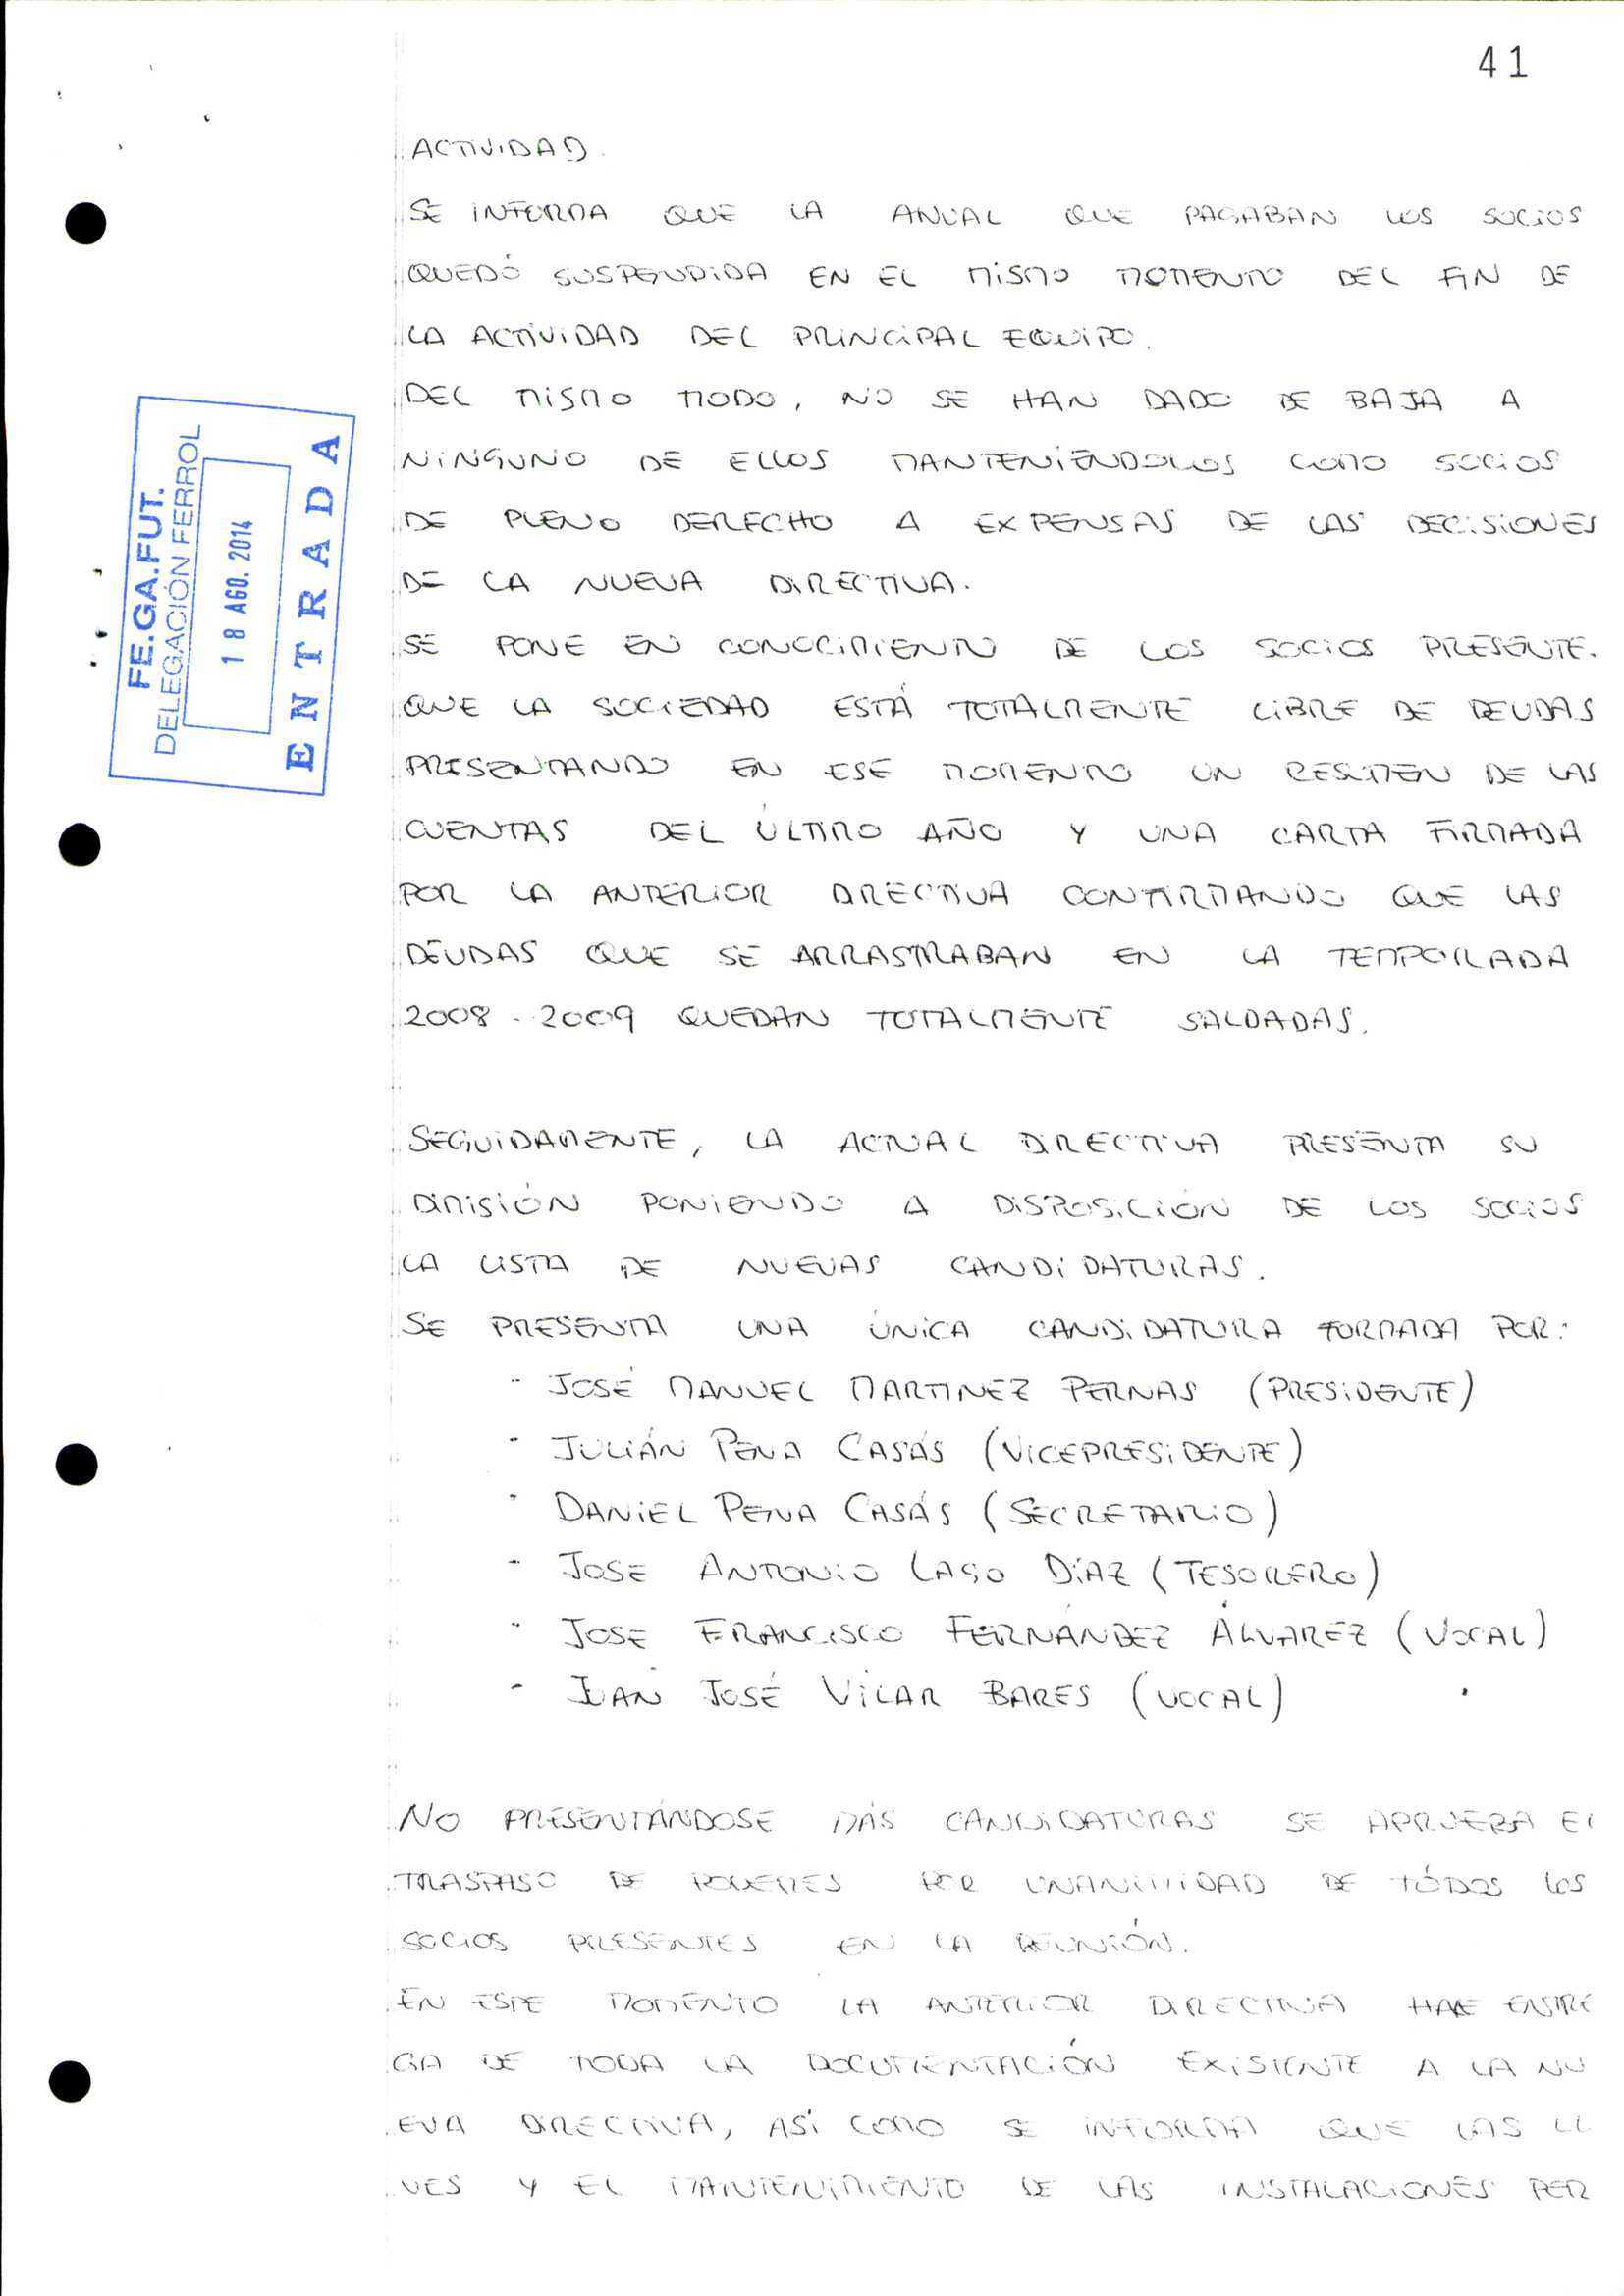 41
ACTIVIDAD.
SE INFORMA QUE LA ANUAL QUE PAGABAN LOS SOCIOS
QUEDÓ SUSPENDIDA EN EL MISMO MOMENTO DEL FIN DE
LA ACTIVIDAD DEL PRINCIPAL EQUIPO.
DEL MISMO MODO, NO SE HAN DADO DE BAJA A
NINGUNO DE ELLOS MANTENIÉNDOLOS COMO SOCIOS
DE PLENO DERECHO A EXPENSAS DE LAS DECISIONES
DE LA NUEVA DIRECTIVA.
SE PONE EN CONOCIMIENTO DE LOS SOCIOS PRESENTE.
QUE LA SOCIEDAD ESTÁ TOTALMENTE LIBRE DE DEUDAS
PRESENTANDO EN ESE MOMENTO UN RESUMEN DE LAS
CUENTAS DEL ÚLTIMO AÑO Y UNA CARTA FIRMADA
POR LA ANTERIOR DIRECTIVA CONFIRMANDO QUE LAS
DEUDAS QUE SE ARRASTRABAN EN LA TEMPORADA
2008-2009 QUEDAN TOTALMENTE SALDADAS.
SEGUIDAMENTE, LA ACTUAL DIRECTIVA PRESENTA SU
DIMISIÓN PONIENDO A DISPOSICIÓN DE LOS SOCIOS
LA LISTA DE NUEVAS CANDIDATURAS.
SE PRESENTA UNA ÚNICA CANDIDATURA FORMADA POR:
- JOSÉ MANUEL MARTINEZ PERNAS (PRESIDENTE)
- JULIÁN PENA CASÁS (VICEPRESIDENTE)
- DANIEL PENA CASÁS (SECRETARIO)
- JOSE ANTONIO LAGO DÍAZ (TESORERO)
- JOSE FRANCISCO FERNÁNDEZ ÁLVAREZ (VOCAL)
- JUAN JOSÉ VILAR BARES (VOCAL)
NO PRESENTÁNDOSE MÁS CANDIDATURAS SE APRUEBA EL
TRASPASO DE PODERES POR UNANIMIDAD DE TÓDOS LOS
SOCIOS PRESENTES EN LA REUNIÓN.
EN ESTE MOMENTO LA ANTERIOR DIRECTIVA HACE ENTRE
GA DE TODA LA DOCUMENTACIÓN EXISTENTE A LA NU
EVA DIRECTIVA, ASÍ COMO SE INFORMA QUE LAS LL
VES Y EL MANTENIMIENTO DE LAS INSTALACIONES PER
FE.GA.FUT.
DELEGACIÓN FERROL
18 AGO. 2014
ENTRADA